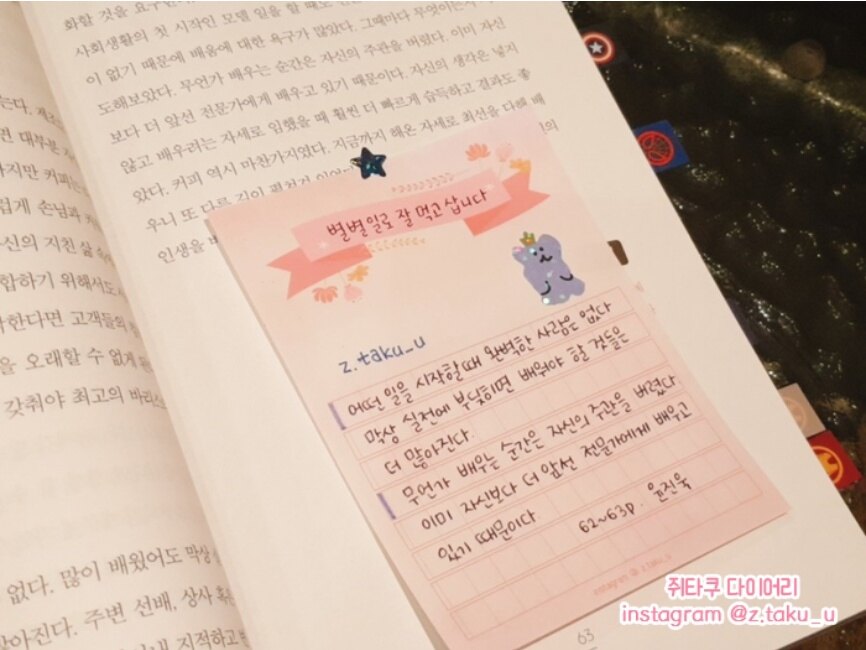 화할 것을 요구
사회생활의 첫 시작인 모델 일을 할 때도
이 없기 때문에 배움에 대한 욕구가 많았다. 그때마다 무엇이든
도해보았다. 무언가 배우는 순간은 자신의 주관을 버렸다. 이미 자신
보다 더 앞선 전문가에게 배우고 있기 때문이다. 자신의 생각은 넣지
않고 배우려는 자세로 임했을 때 훨씬 더 빠르게 습득하고 결과도 좋
았다. 커피 역시 마찬가지였다. 지금까지 해온 자세로 최선을 다해 배
우니 또 다른 길이
인생을
는다.
면 대부분
하지만 커피는
럽게 손님과
신의 지친 삶
합하기 위해서도
한다면 고객들의
을 오래할 수 없게
갖춰야 최고의 바리스
없다. 많이 배웠어도 막상
많아진다. 주변 선배, 상사 혹은
지적하고
별별일로 잘 먹고 삽니다
z.taku_u
어떤 일을 시작할때 완벽한 사람은 없다
막상 실전에 부딪히면 배워야 할 것들은
더 많아진다.
무언가 배우는 순간은 자신의 주관을 버렸다
이미 자신보다 더 앞선 전문가에게 배우고
있기 때문이다
62~63p. 윤진욱
instagram @ z.taku_u
63
쥐타쿠 다이어리
instagram @z.taku_u